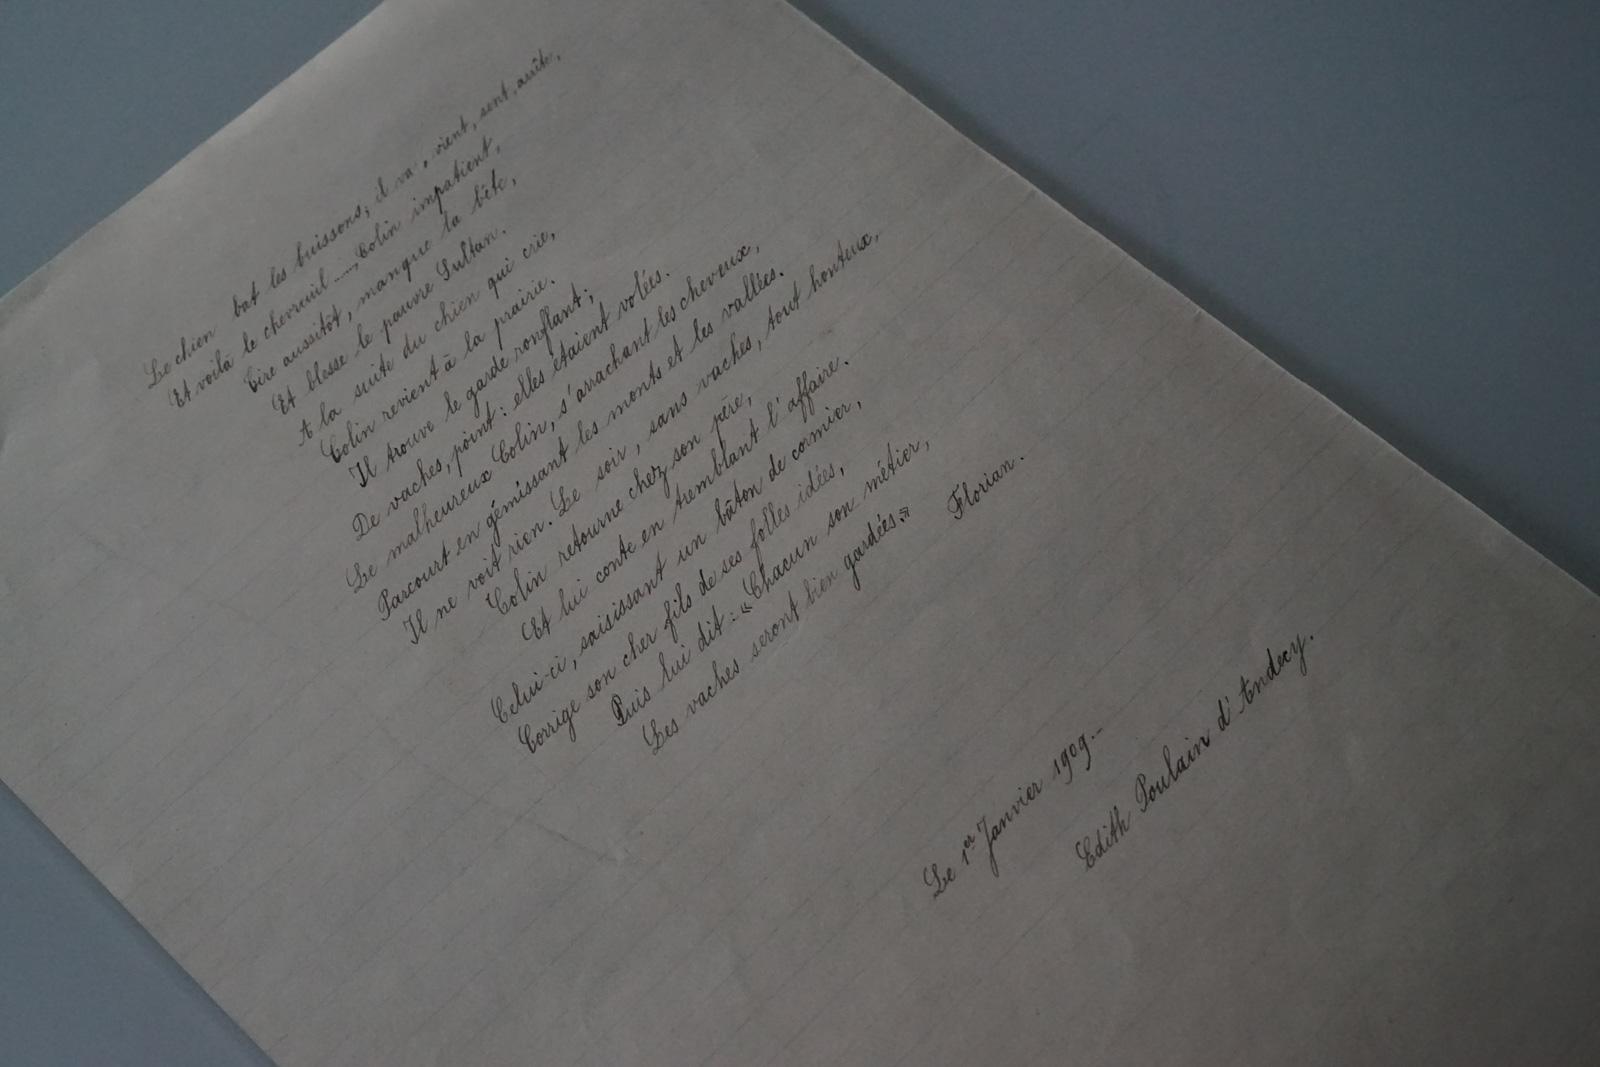 Le chien bat les buissons; il va, vient, sent, arrête,
Et voilà le chevreuil..... Colin impatient,
Tire aussitôt, manque la bête,
Et blesse le pauvre Sultan.
A la suite du chien qui crie,
Colin revient à la prairie.
Il trouve le garde ronflant;
De vaches, point: elles étaient volées.
Le malheureux Colin, s'arrachant les cheveux,
Parcourt en gémissant les monts et les vallées.
Il ne voit rien. Le soir, sans vaches, tout honteux,
Colin retourne chez son père,
Et lui conte en tremblant l'affaire.
Celui-ci, saisissant un bâton de cormier,
Corrige son cher fils de ses folles idées,
Puis lui dit: «Chacun son métier,
Les vaches seront bien gardées.»
Florian.
Le 1er Janvier 1909.-
Edith Poulain d'Andecy.